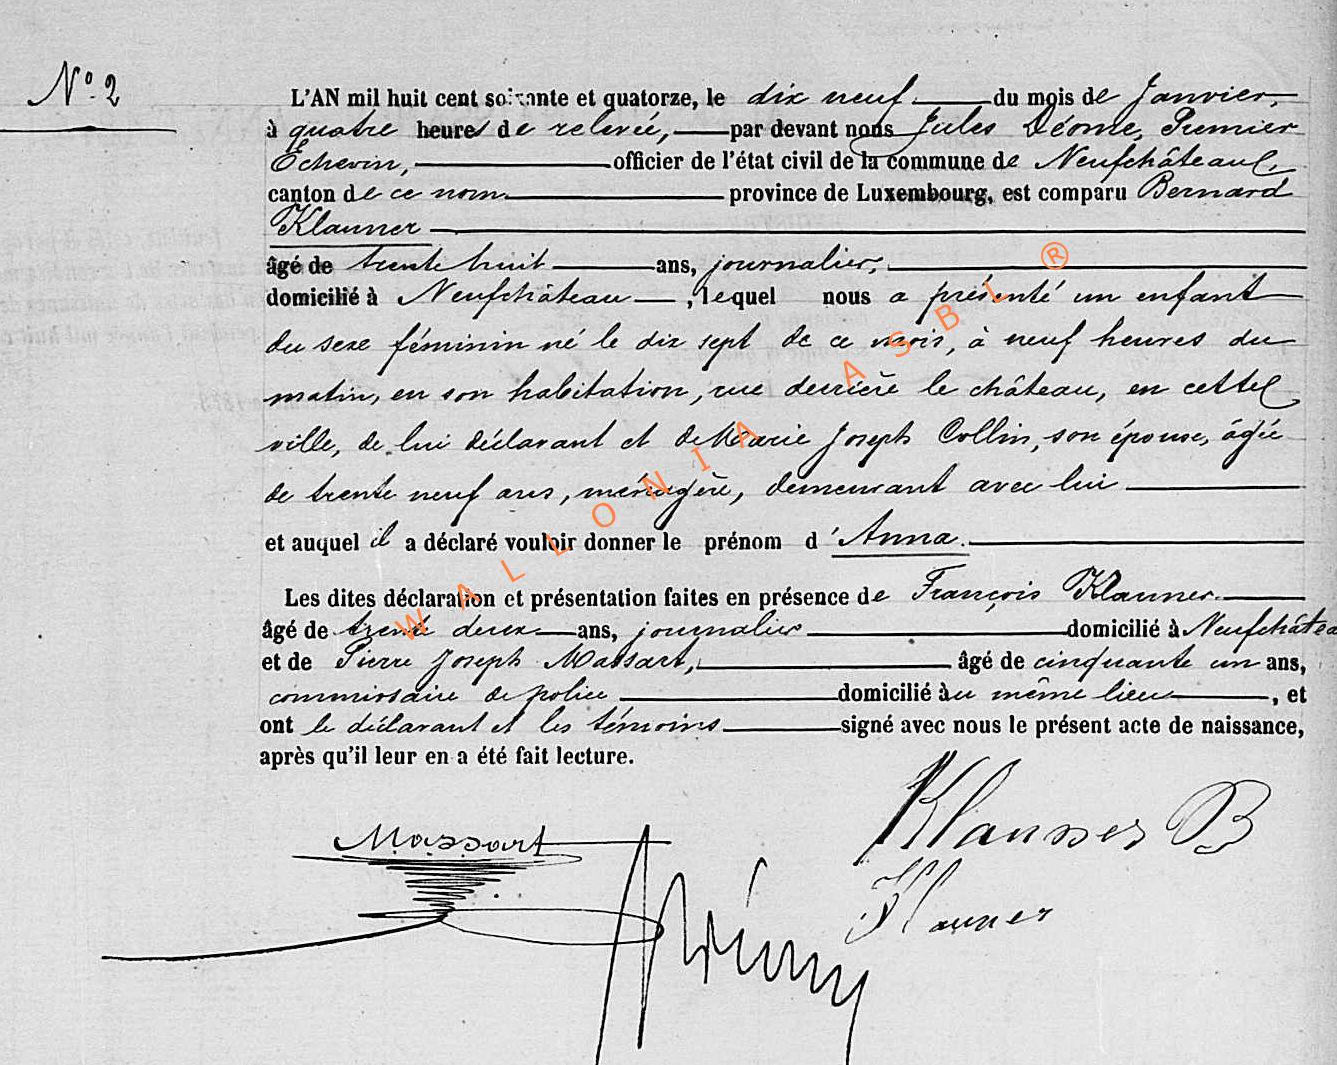 N° 2
L'AN mil huit cent soixante et quatorze, le dix neuf du mois de Janvier,
à quatre heures de relevée, par devant nous Jules Déome, Premier
Echevin, officier de l'état civil de la commune de Neufchâteau,
canton de ce nom province de Luxembourg, est comparu Bernard
Klauner
âgé de trente huit ans, journalier,
domicilié à Neufchâteau, lequel nous a présenté un enfant
du sexe féminin né le dix sept de ce mois, à neuf heures du
matin, en son habitation, rue derrière le château, en cette
ville, de lui déclarant et de Marie Joseph Collin, son épouse, âgée
de trente neuf ans, ménagère, demeurant avec lui
et auquel il a déclaré vouloir donner le prénom d'Anna.
Les dites déclaration et présentation faites en présence de François Klauner
âgé de trente deux ans, journalier domicilié à Neufchâteau
et de Pierre Joseph Massart, âgé de cinquante un ans,
commissaire de police domicilié au même lieu, et
ont le déclarant et les témoins signé avec nous le présent acte de naissance,
après qu'il leur en a été fait lecture.
Klausser B
Massart
Klauner
WALLONIA ASBL ®